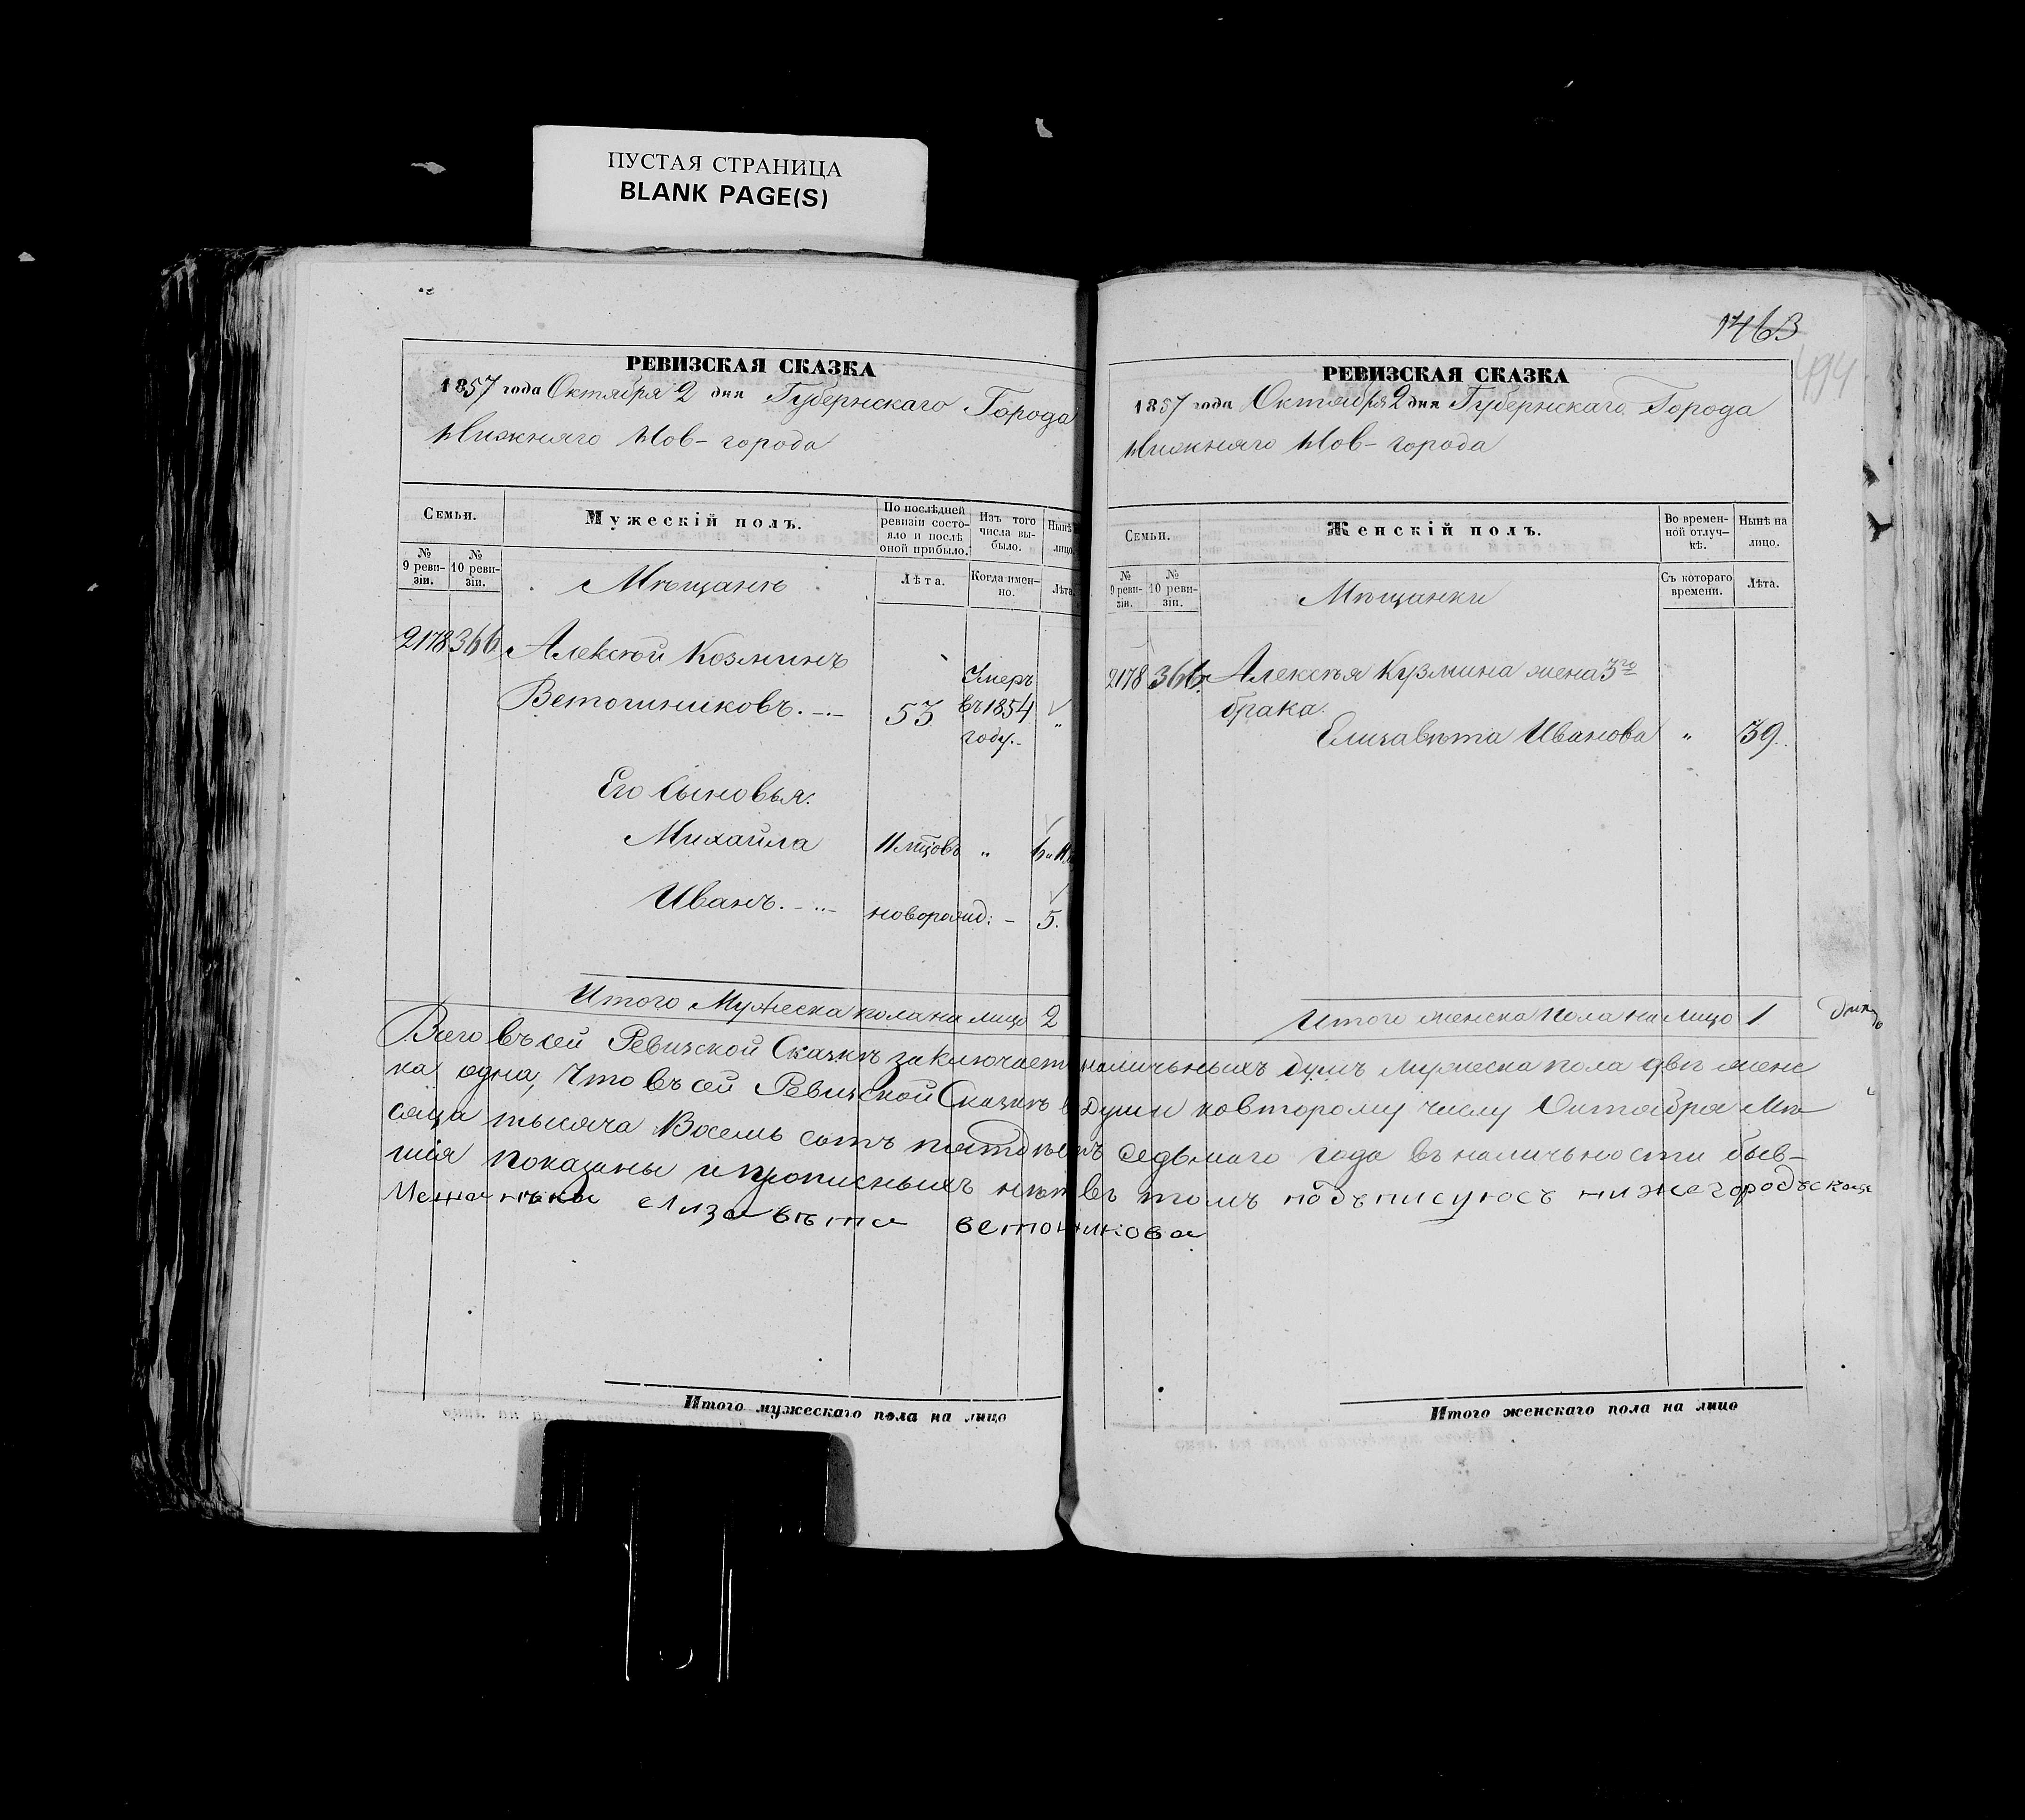 ПУСТАЯ СТРАНИЦА
BLANK PAGE(S)
РЕВИЗСКАЯ СКАЗКА
1857 года Октября 2 дня Губернскаго Города
Нижняго Нов-города
Семьи.
Мужескій полъ.
По послѣдней ревизіи состояло и послѣ оной прибыло.
Изъ того числа выбыло.
Нынѣ
лицо.
№ 9 ревизіи.
№ 10 ревизіи.
Мѣщанѣ
Лѣта.
Когда именно.
Лѣта.
2178 366 Алексѣй Козминъ
Ветошниковъ. 53 Умеръ въ 1854 году. "
Его Сыновья:
Михайла 11 мцовъ "
Иванъ. новорожд: - 5.
Итого Мужеска пола на лицо 2
1463
РЕВИЗСКАЯ СКАЗКА
1857 года Октября 2 дня Губернскаго Города
Нижняго Нов-города
Семьи.
Женскій полъ.
Во временной отлучкѣ.
Нынѣ на лицо.
№ 9 ревизіи.
№ 10 ревизіи.
Мѣщанки
Съ котораго времени.
Лѣта.
2178 366 Алексѣя Кузмина жена 3го
брака.
Елизавѣта Иванова " 39.
Итого женска пола на лицо 1
Всего въ сей Ревизской Сказкѣ заключает наличьныхъ душъ мужеска пола двѣ женс
ка одна, Что въ сей Ревизской Сказкѣ души ковторому числу Октября Мѣ
сяца тысяча Восемь сотъ пятдѣ седьмаго года въ наличьности быв-
шія показаны и прописныхъ нѣт въ томъ подъписуюсь нижегородъская
елизавѣта ветошникова
Итого мужескаго пола на лицо
Итого женскаго пола на лицо